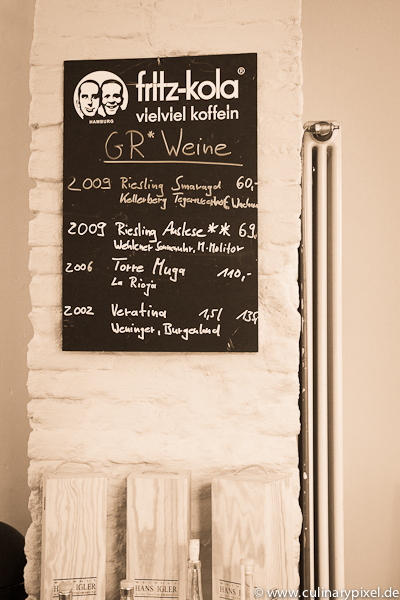 fritz-kola®
HAMBURG
vielviel koffein
GR* Weine
2009 Riesling Smaragd 60,-
Kellerberg Tegernseerhof, Wachau
2009 Riesling Auslese ** 69,
Wehlener Sonnenuhr, M. Molitor
2006 Torre Muga 110,-
La Rioja
2002 Veratina 1,5l 138,
Weninger, Burgenland
HANS IGLER
HANS IGLER
HANS IGLER
© www.culinarypixel.de